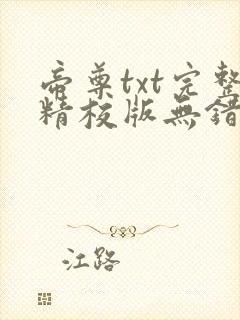 帝尊txt完整
精校版無錯
江路